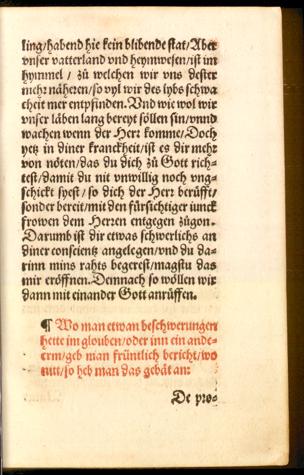 ling/habend hie kein blibende stat/Aber
vnser vatterland vnd heymwesen/ist im
hymmel / zů welchen wir vns dester
mehr näheren/so vyl wir des lybs schwa
cheit mer entpfinden. Vnd wie wol wir
vnser läben lang bereyt söllen sin/vnnd
wachen wenn der Herr komme/Doch
yetz in diner kranckheit/ist es dir mehr
von nöten/das du dich zů Gott rich-
test/damit du nit vnwillig noch vng-
schickt syest/so dich der Herr berüfft/
sonder bereit/mit den fürsichtiger iunck
frowen dem Herren entgegen zůgon.
Darumb ist dir etwas schwerlichs an
diner conscientz angelegen/vnd du da-
rinn mins rahts begerest/magstu das
mir eröffnen. Demnach so wöllen wir
dann mit einander Gott anrüffen.
¶ Wo man etwan beschwerungen
hette im glouben/oder inn ein ande-
erm/geb man früntlich bericht/wo
nitt/so heb man das gebät an:
De pro-